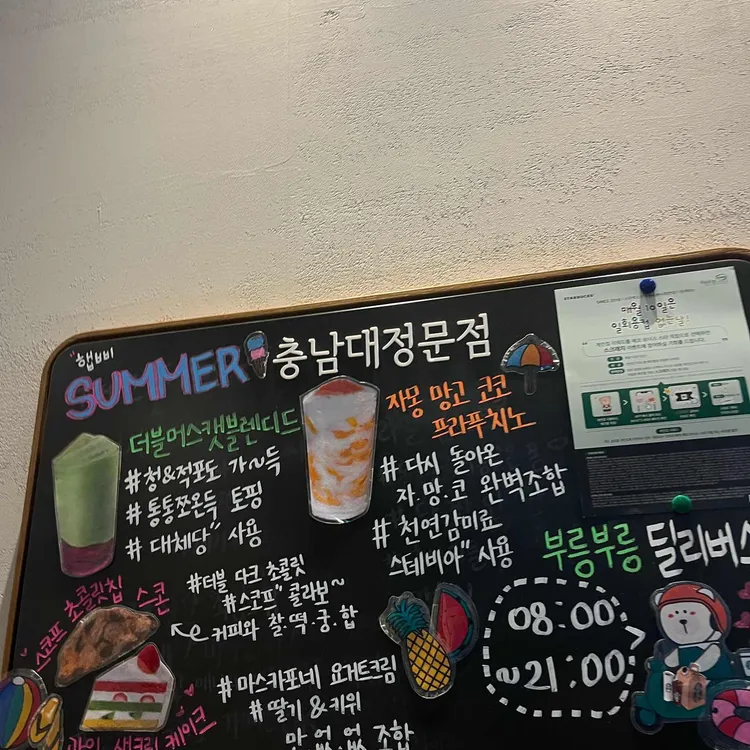 "햅삐
SUMMER 충남대정문점
더블머스캣블렌디드
#청&적포도 가~득
#통통쪼온득 토핑
# 대체당" 사용
자몽 망고 코코
프라푸치노
# 다시 돌아온
자.망.코 완벽조합
# 천연감미료
스테비아" 사용
STARBUCKS
매월 10일은
일회용컵 없는날!
부릉부릉 딜리버스
08:00
~21:00
스코프 초콜릿칩 스콘
#더블 다크 초콜릿
#스코프" 콜라보~
커피와 찰.떡.궁.합
#마스카포네 요거트크림
#딸기&키위
맛.없.없 조합
과일 생크림 케이크